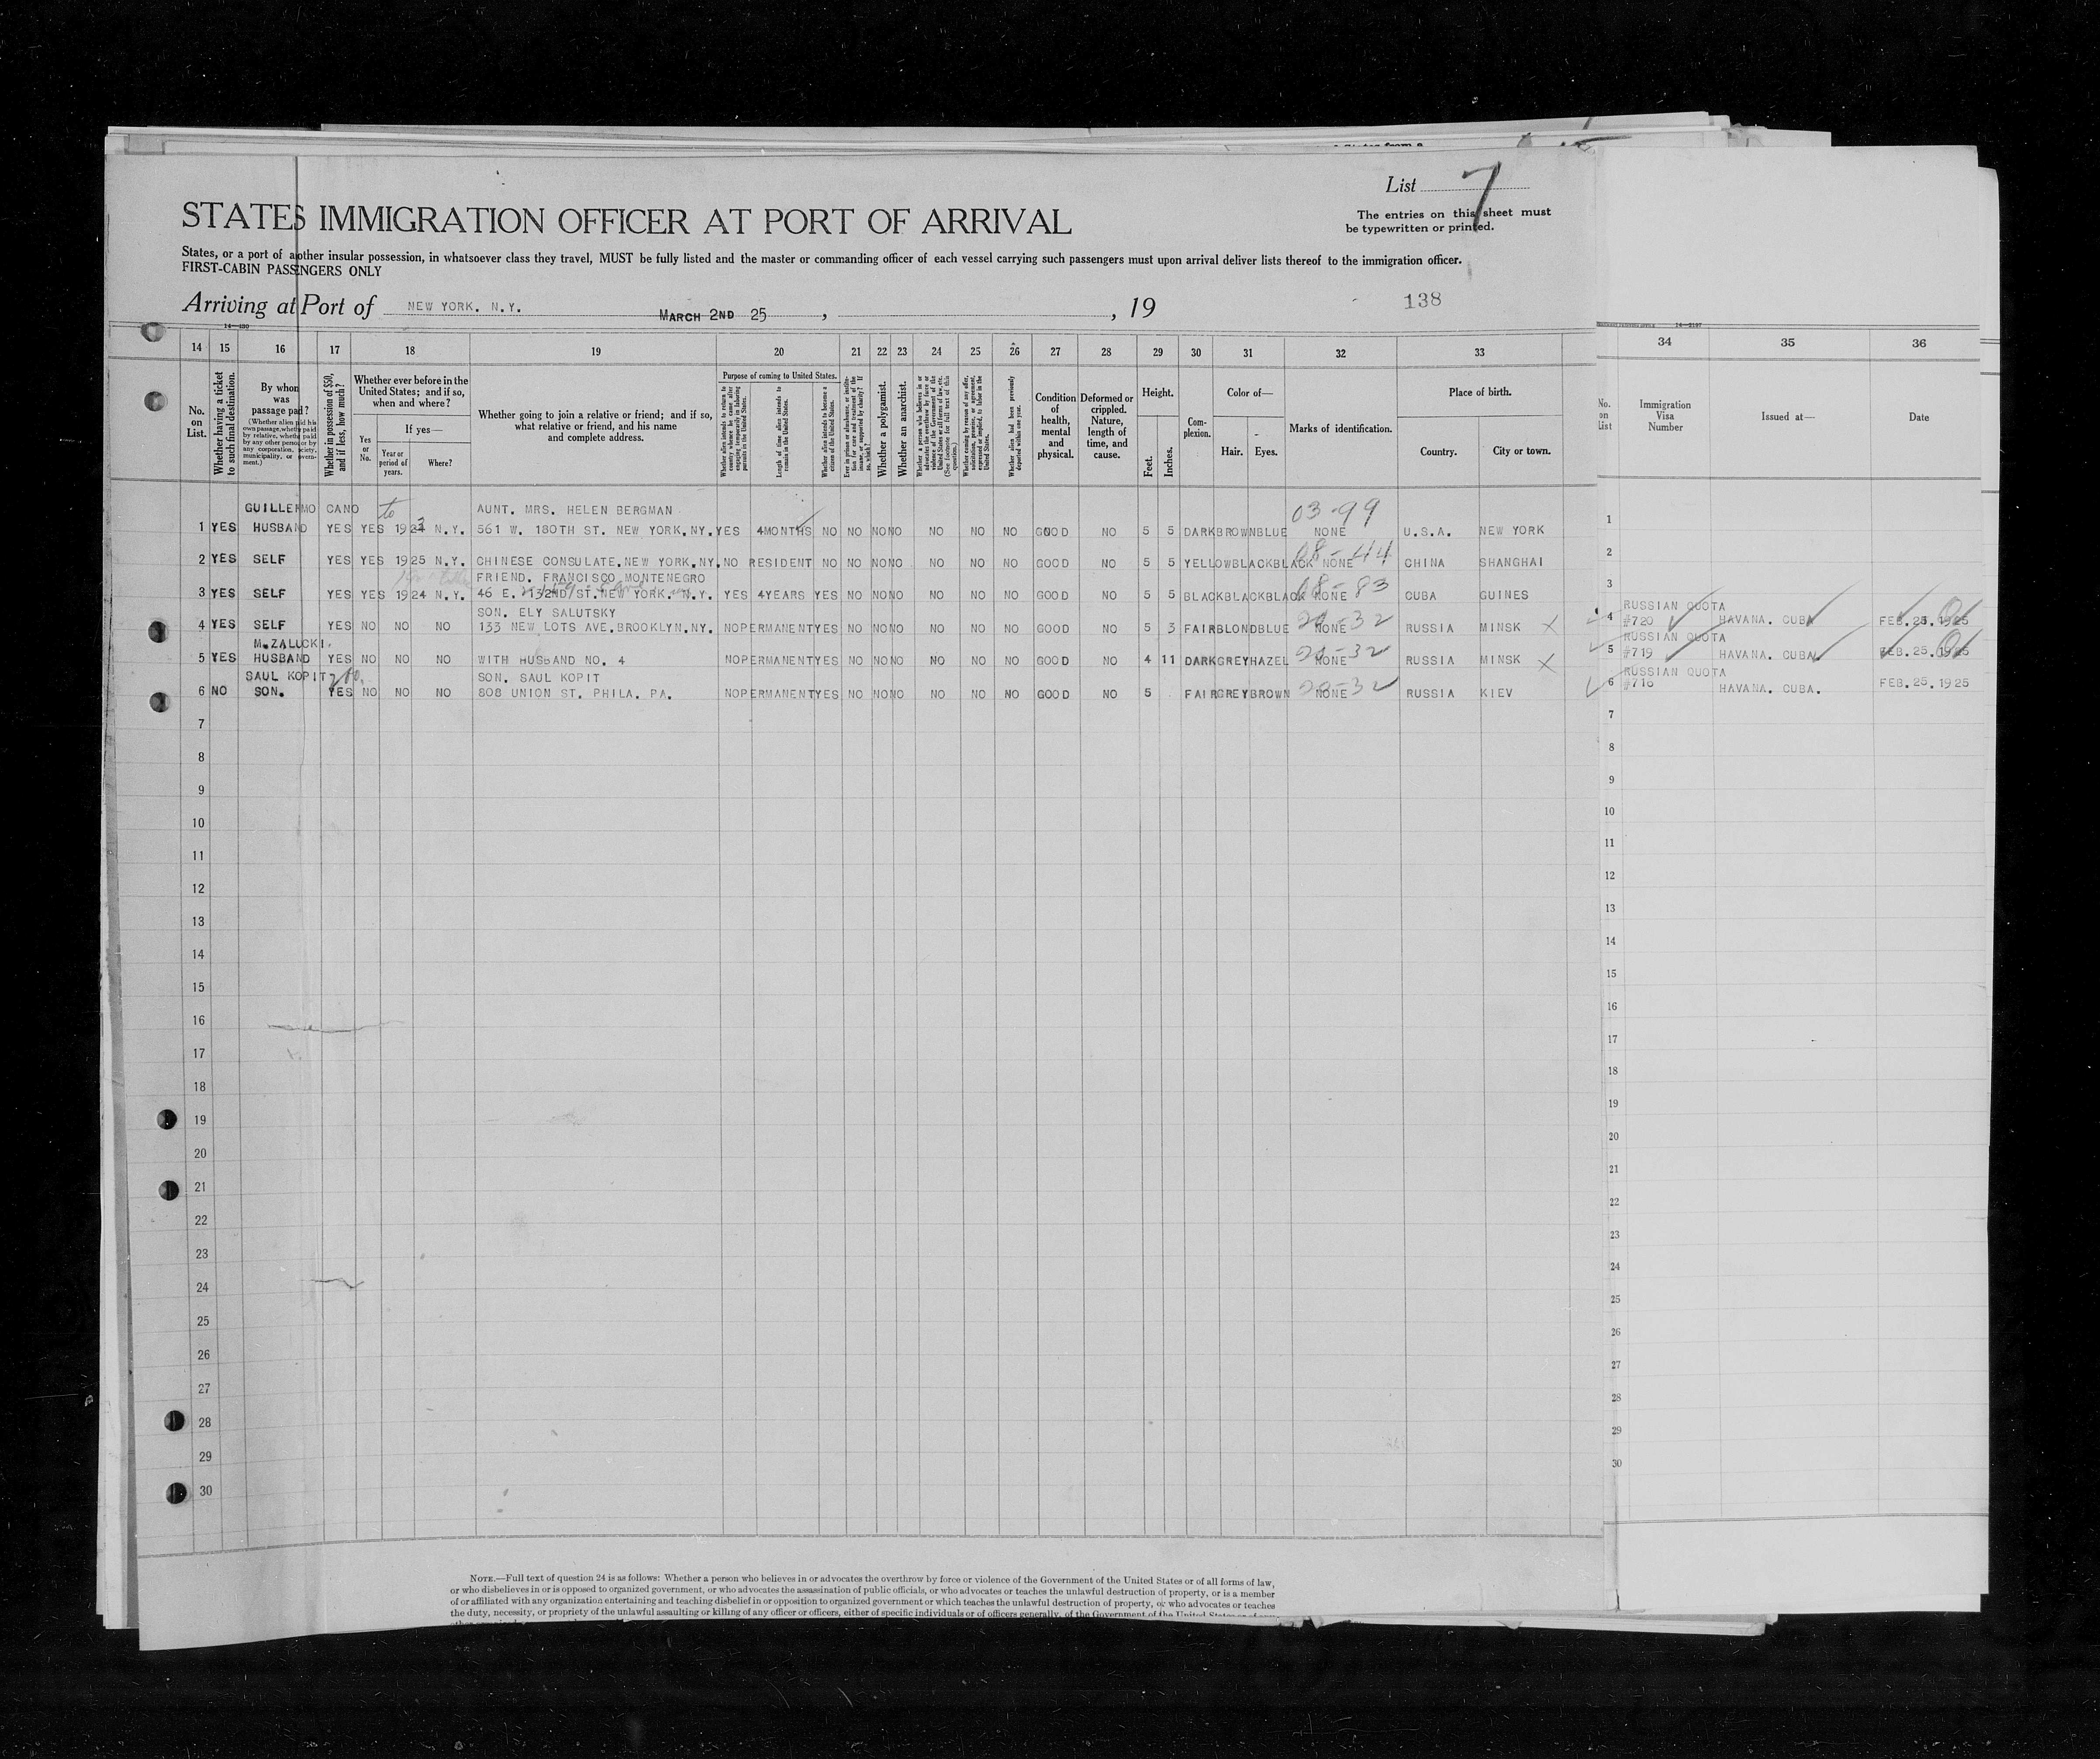 List 7
The entries on this sheet must
be typewritten or printed.
STATES IMMIGRATION OFFICER AT PORT OF ARRIVAL
States, or a port of another insular possession, in whatsoever class they travel, MUST be fully listed and the master or commanding officer of each vessel carrying such passengers must upon arrival deliver lists thereof to the immigration officer.
FIRST-CABIN PASSENGERS ONLY
Arriving at Port of NEW YORK. N.Y. MARCH 2ND 25, , 19 138
14 15 16 17 18 19 20 21 22 23 24 25 26 27 28 29 30 31 32 33 34 35 36
No. on List.
Whether having a ticket to such final destination.
By whom was passage paid?
(Whether alien paid his own passage, whether paid by relative, whether paid by any other person, or by any corporation, society, municipality, or government.)
Whether in possession of $50, and if less, how much?
Whether ever before in the United States; and if so, when and where?
Yes or No.
If yes—
Year or period of years.
Where?
Whether going to join a relative or friend; and if so, what relative or friend, and his name and complete address.
Purpose of coming to United States.
Whether alien intends to return to country whence he came after engaging temporarily in laboring pursuits in the United States.
Length of time alien intends to remain in the United States.
Whether alien intends to become a citizen of the United States.
Ever in prison or almshouse, or institution for care and treatment of the insane, or supported by charity? If so, which?
Whether a polygamist.
Whether an anarchist.
Condition of health, mental and physical.
Deformed or crippled. Nature, length of time, and cause.
Height.
Feet.
Inches.
Complexion.
Color of—
Hair.
Eyes.
Marks of identification.
Place of birth.
Country.
City or town.
No. on List
Immigration Visa Number
Issued at—
Date
GUILLERMO CANO to AUNT. MRS. HELEN BERGMAN 03-99
1 YES HUSBAND YES YES 1923 N.Y. 561 W. 180TH ST. NEW YORK.NY. YES 4MONTHS NO NO NO NO NO NO NO GOOD NO 5 5 DARK BROWN BLUE NONE U.S.A. NEW YORK 1
2 YES SELF YES YES 1925 N.Y. CHINESE CONSULATE.NEW YORK.NY. NO RESIDENT NO NO NO NO NO NO NO GOOD NO 5 5 YELLOW BLACK BLACK NONE 08-44 CHINA SHANGHAI 2
FRIEND. FRANCISCO MONTENEGRO
3 YES SELF YES YES 1924 N.Y. 46 E. 132ND ST. NEW YORK. N.Y. YES 4YEARS YES NO NO NO NO NO NO GOOD NO 5 5 BLACK BLACK BLACK NONE 08-83 CUBA GUINES 3
SON. ELY SALUTSKY RUSSIAN QUOTA
4 YES SELF YES NO NO NO 133 NEW LOTS AVE.BROOKLYN.NY. NO PERMANENT YES NO NO NO NO NO NO GOOD NO 5 3 FAIR BLOND BLUE NONE 20-32 RUSSIA MINSK X 4 #720 HAVANA. CUBA FEB.25.1925
M.ZALUCKI. RUSSIAN QUOTA
5 YES HUSBAND YES NO NO NO WITH HUSBAND NO. 4 NO PERMANENT YES NO NO NO NO NO NO GOOD NO 4 11 DARK GREY HAZEL NONE 20-32 RUSSIA MINSK X 5 #719 HAVANA. CUBA FEB.25.1925
SAUL KOPIT SON. SAUL KOPIT RUSSIAN QUOTA
6 NO SON. YES NO NO NO 808 UNION ST. PHILA. PA. NO PERMANENT YES NO NO NO NO NO NO GOOD NO 5 FAIR GREY BROWN NONE 20-32 RUSSIA KIEV 6 #718 HAVANA. CUBA. FEB.25.1925
7 7
8 8
9 9
10 10
11 11
12 12
13 13
14 14
15 15
16 16
17 17
18 18
19 19
20 20
21 21
22 22
23 23
24 24
25 25
26 26
27 27
28 28
29 29
30 30
NOTE.—Full text of question 24 is as follows: Whether a person who believes in or advocates the overthrow by force or violence of the Government of the United States or of all forms of law,
or who disbelieves in or is opposed to organized government, or who advocates the assassination of public officials, or who advocates or teaches the unlawful destruction of property, or is a member
of or affiliated with any organization entertaining and teaching disbelief in or opposition to organized government or which teaches the unlawful destruction of property, or who advocates or teaches
the duty, necessity, or propriety of the unlawful assaulting or killing of any officer or officers, either of specific individuals or of officers generally, of the Government of the United States